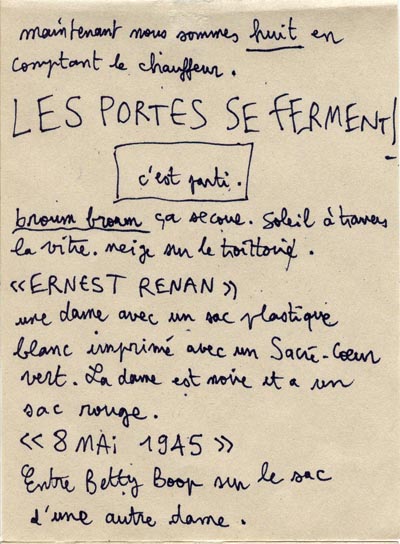 maintenant nous sommes huit en
comptant le chauffeur.
LES PORTES SE FERMENT!
c'est parti.
broum broum ça secoue. Soleil à travers
la vitre. neige sur le trottoir.
«ERNEST RENAN»
une dame avec un sac plastique
blanc imprimé avec un Sacré-Cœur
vert. La dame est noire et a un
sac rouge.
«8 MAi 1945»
Entre Betty Boop sur le sac
d'une autre dame.